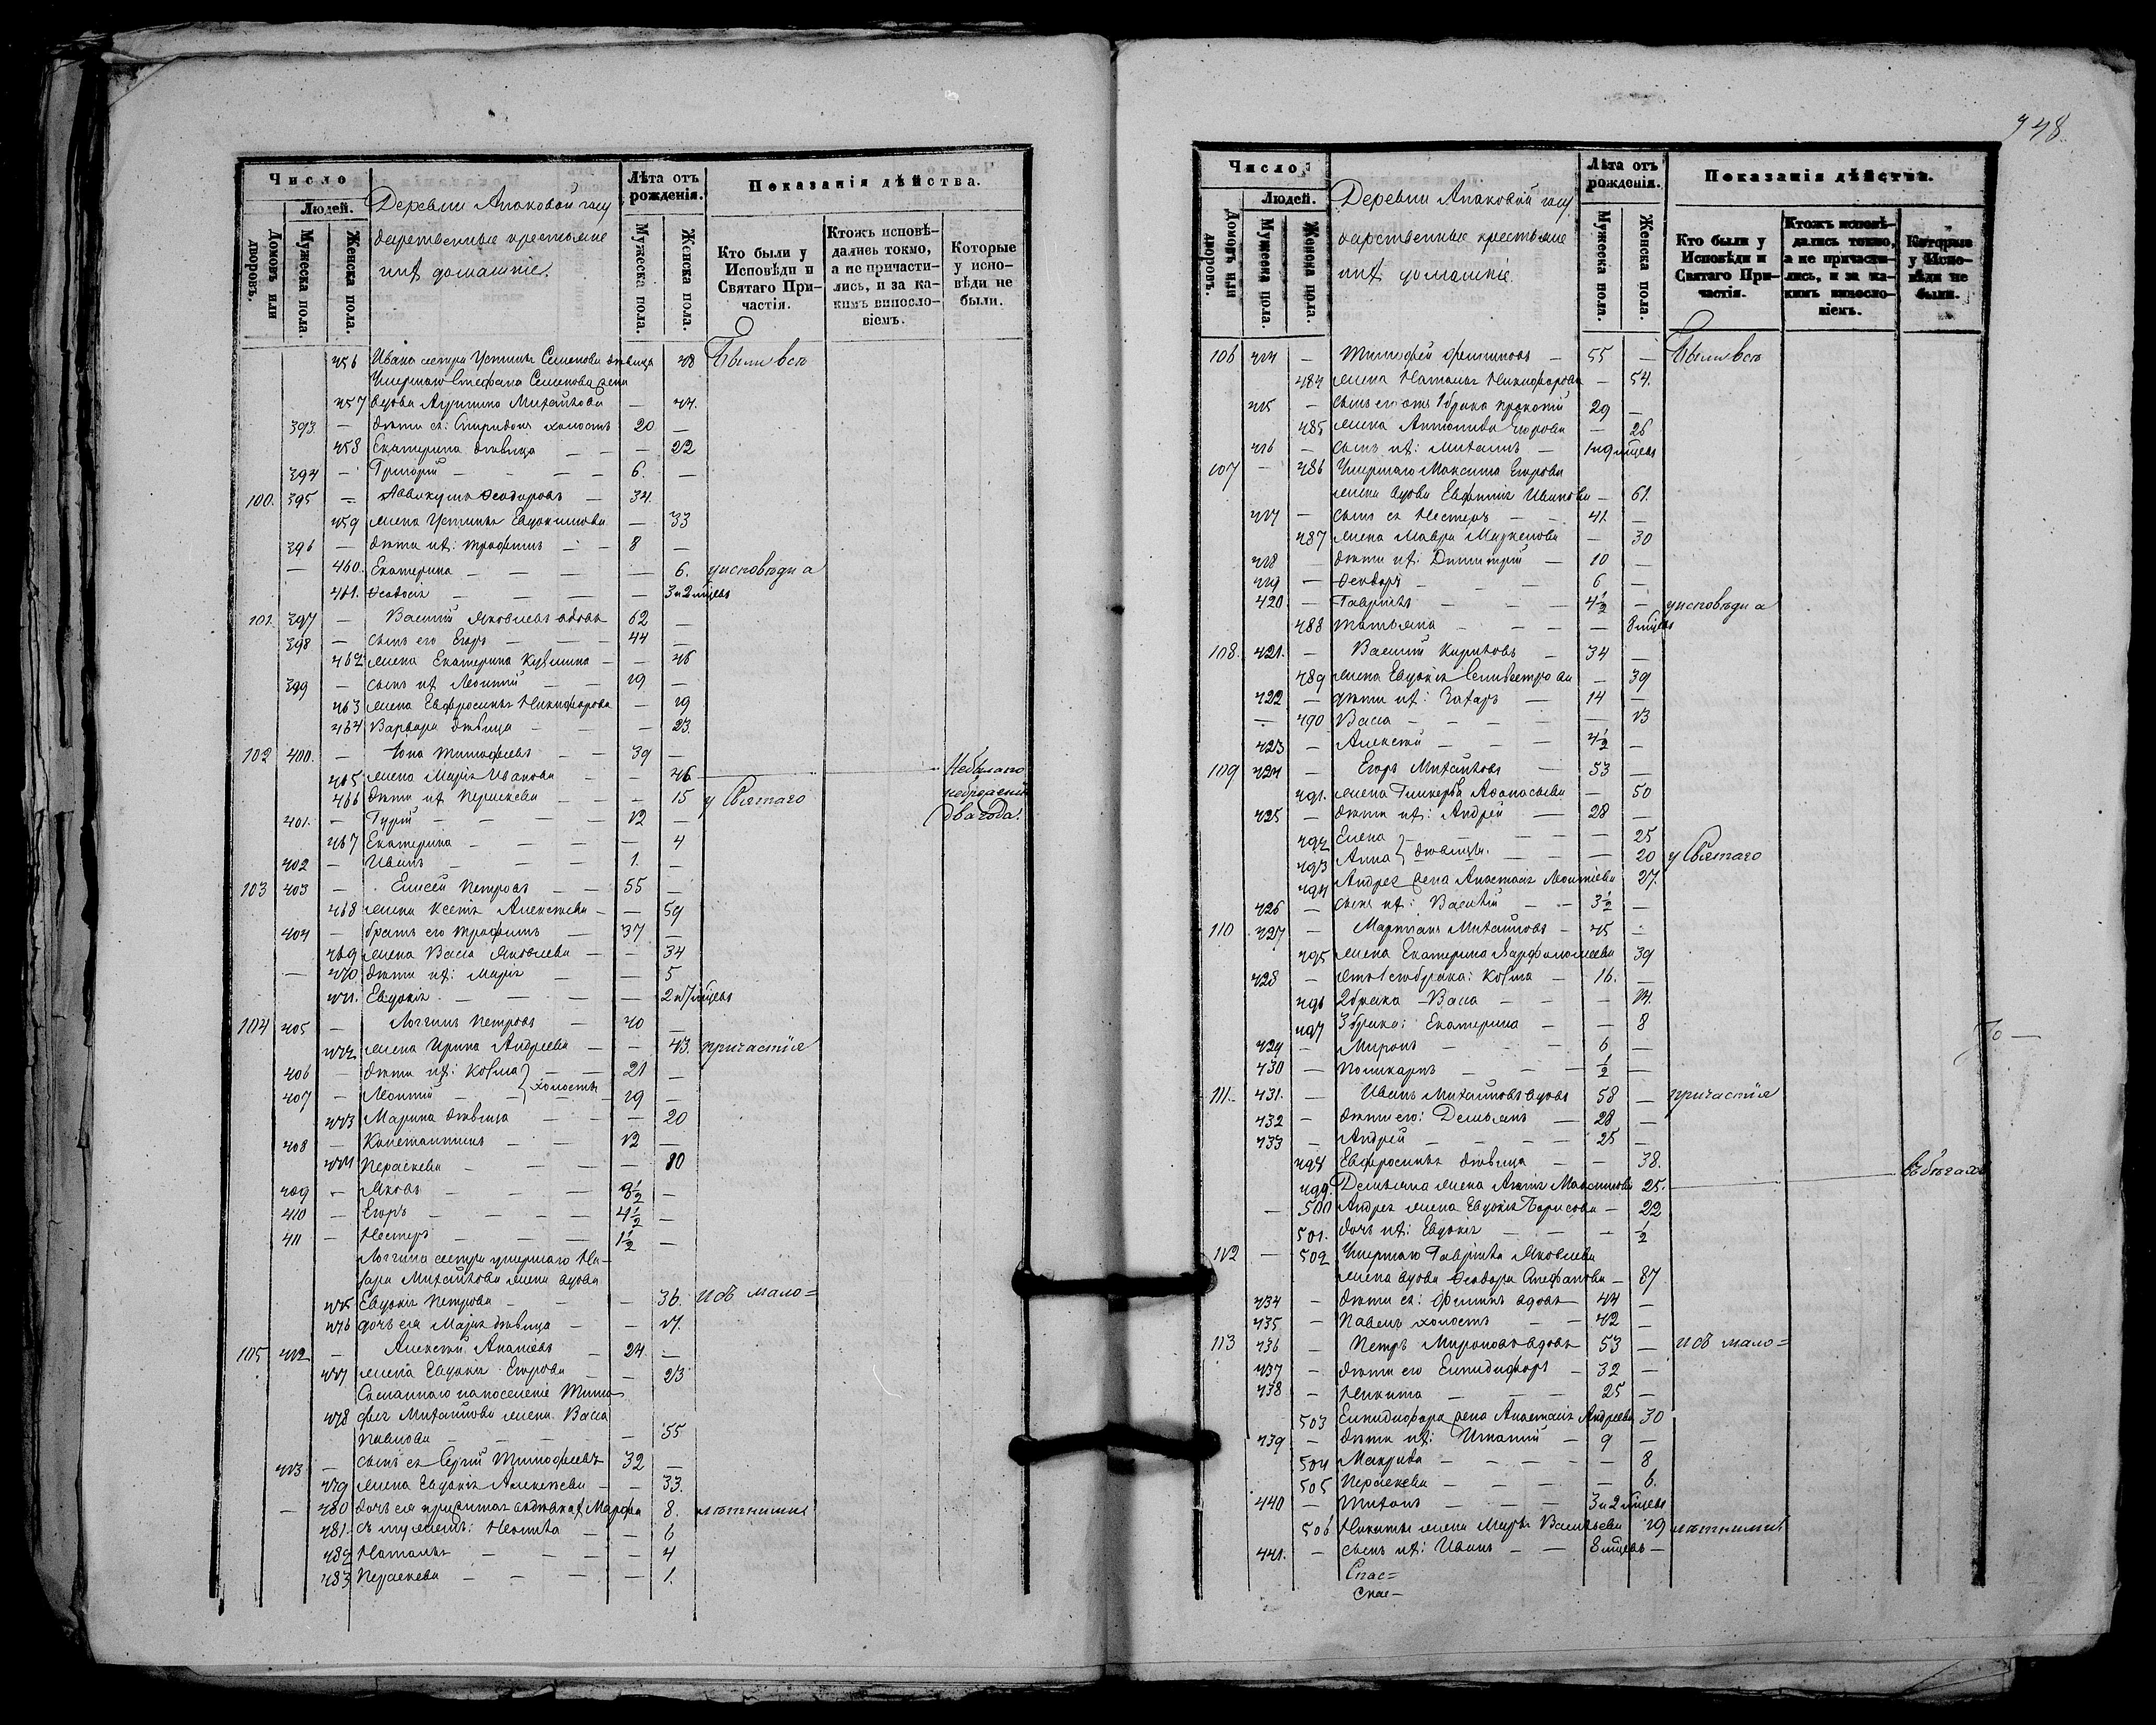 748.
Число
Людей.
Домовъ или дворовъ.
Мужеска пола
Женска пола.
Деревни Апаковой госу
дарственные крестьяне
ихъ домашніе.
Лѣта отъ рожденія.
Мужеска пола.
Женска пола.
Показанія дѣйства.
Кто были у Исповѣди и Святаго Причастія.
Ктожъ исповѣ-
дались токмо,
а не причасти-
лись, и за ка-
кимъ виносло-
віемъ.
Которые
у испо-
вѣди не
были.
456 Ивана сестра Устинья Семенова дѣвица 48 Были всѣ
Умершаго Стефана Семенова жена
457 вдова Михайлова — 44.
393. — дѣти ея: Спиридонъ холостъ 20 —
458 Екатерина дѣвица — — — 22
394 — Григорій — — — 6. —
100. 395 — Аввакумъ Ѳеодоровъ — 34.
459 жена Устинья Евдокимова — 33
396 — дѣти ихъ: Трофимъ — — 8 —
— 460. Екатерина — — — — 6. у исповѣди и
461. Ѳеодосія — — — — 3 и 2 мѣсяц.
101. 397 — Василій Яковлевъ вдовъ 62 —
398 — сынъ его Егоръ — — — 44 —
462 жена Екатерина Кузмина — — 46
399 — сынъ ихъ Леонтій — — 19 —
463 жена Евфросинья Никифорова — 19
464 Варвара дѣвица — — — 23.
102 400. — Іона Тимофеевъ — — 39 —
465 жена Марія Иванова — — 46 Небыла по
466 дѣти ихъ Пераскева — — — 15 у Святаго
401. — Гурій — — — — 12 — два года.
467 Екатерина — — — — 4
402 — Иванъ — — — 1. —
103 403 — Елисей Петровъ — — 55 —
468 жена Ксенія Алексѣева — — 59
404 — братъ его Трофимъ — 37 —
469 жена Васса Яковлева — — 34
— 470 дѣти ихъ: Марія — — 5
471. Евдокія — — — — 2 и 7 мѣсяц.
104 405 — Логгинъ Петровъ — 40 —
472 жена Ирина Андреева — — 43. причастія
406 — дѣти ихъ: Козма — — 21 —
407 — Леонтій — — холосты 19 —
473 Марина дѣвица — — — 20
408 — Константинъ — — 12 —
474 Пераскева — — — — 10
409 — Яковъ — — — 8½ —
410 — Егоръ — — — — 4½ —
411 — Нестеръ — — — 1½ —
Логгина сестра умершаго На-
зара Михайлова жена вдова
475 Евдокія Петрова — — — 36. исъ мало=
476 дочь ея Марія дѣвица — — 17.
105 412 — Алексѣй Ананіевъ — 24 —
477 жена Евдокія Егорова — — 23
Сосланнаго на поселеніе Тимо-
478 фея Михайлова жена Васса
Павлова — — — — — 55
413 — сынъ ея Сергій Тимофеевъ 32 —
479 жена Евдокія Алексѣева — — 33.
— 480 дочь ея Марфа 8. лѣтними
481. съ мужемъ: Неонила — — 6
482 Наталья — — — — 4
483 Пераскева — — — — 1.
Число
Людей.
Домовъ или дворовъ.
Мужеска пола.
Женска пола.
Деревни Апаковой госу
дарственные крестьяне
ихъ домашніе.
Лѣта отъ рожденія.
Мужеска пола.
Женска пола.
Показанія дѣйства.
Кто были у Исповѣди и Святаго Причастія.
Ктожъ исповѣ-
дались токмо,
а не причасти-
лись, и за ка-
кимъ виносло-
віемъ.
Которые
у Испо-
вѣди не
были.
106 414 — Тимофей — 55 — Были всѣ
484 жена Наталья Никифорова — 54.
415 — сынъ его отъ 1 брака Прокопій 29 —
485 жена Антонида Егорова — 26
416 — сынъ ихъ: Михаилъ — 1 и 9 мѣсяц.
107 — 486 Умершаго Максима Егорова
жена вдова Евфимія Иванова — 61.
417 — сынъ ея Нестеръ — — 41. —
487 жена Мавра Маркелова — 30
418 — дѣти ихъ: Димитрій — 10 —
419 — Ѳеодоръ — — — 6 —
420 — Гавріилъ — — — 4½ — у исповѣди и
488 Татьяна — — — — 8 мѣсяц.
108. 421. — Василій Кириловъ — 34 —
489 жена Евдокія Селивестрова — 39
422 — дѣти ихъ: Захаръ — 14 —
— 490 Васса — — — — — 13
423 — Алексѣй — — — 4½ —
109 424 — Егоръ Михайловъ — 53 —
491. жена Гликерья Афанасьева — 50
425 — дѣти ихъ: Андрей — 28 —
492 Елена — — — — 25
493 Анна дѣвицы. — — — 20 у Святаго
494 Андрея жена Анастасія Леонтіева 27.
426 — сынъ ихъ: Василій — — 3½ —
110 427 — Мартынъ Михайловъ — 45 —
495 жена Екатерина Варфоломеева 39
428 — дѣти 1го брака: Козма — 16. —
496 2 брака — Васса — — — 14.
497 3 брака: Екатерина — — 8
429 — Миронъ — — — 6 —
430 — Поликарпъ — — — ½ —
111. 431. — Иванъ Михайловъ вдовъ 58 — причастія
432 — дѣти его: Демьянъ — 28 —
433 — Андрей — — — — 25 —
498 Евфросинья дѣвица — — 38.
499. Демьяна жена Максимова 25. въ бѣгахъ
— 500 Андрея жена Евдокія Борисова — 22
501. дочь ихъ: Евдокія — — — ½
112 — 502 Умершаго Гавріила Яковлева
жена вдова Ѳеодора Стефанова — 87
434 — дѣти ея: Филипъ вдовъ — 44 —
435 — Павелъ холостъ — — 42 —
113 436 — Петръ Мироновъ вдовъ 53 — исъ мало=
437 — дѣти его Елпидифоръ — 32 —
438 — Никита — — — 25 —
503 Елпидифора жена Анастасія Андреева 30
439 — дѣти ихъ: Игнатій — 9 —
504 Макрида — — — — 8
505 Пераскева — — — — 6.
440 — Титъ — — — 3 и 2 мѣсяц.
506 Никиты жена Марья Васильева 19 лѣтними
441. — сынъ ихъ: Иванъ — — 8 мѣсяц. —
Спас=
Спас—